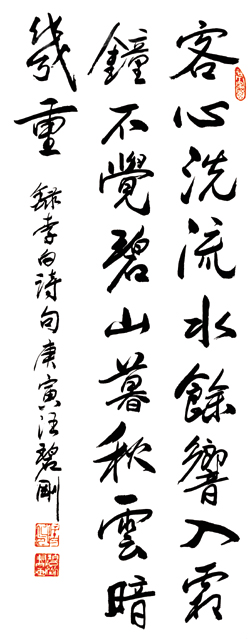 客心洗流水餘響入霜
鐘不覺碧山暮秋雲暗
幾重
錄李白詩句庚寅汪碧剛